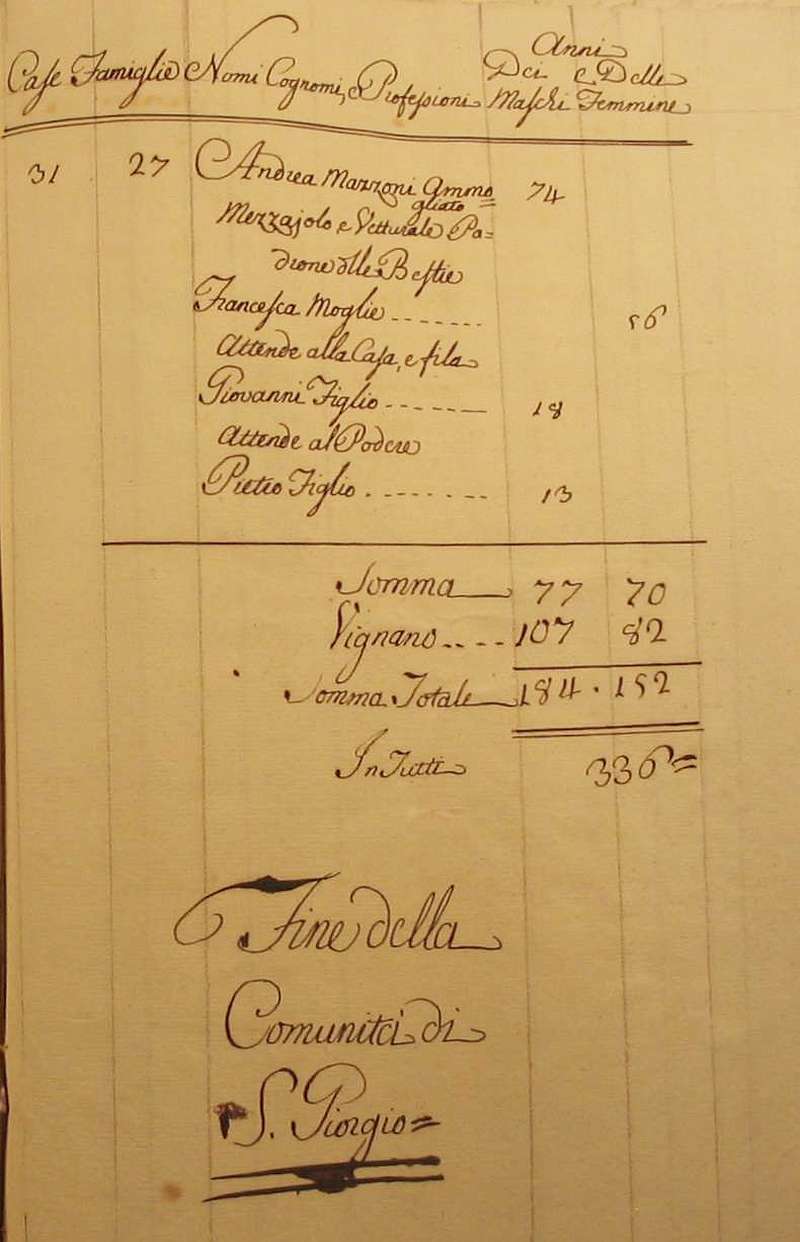 Anni
Dei e Delle
Case Famiglie Nomi Cognomi, e Professioni Maschi Femmine
31 27 Andrea Marzoni Ammo 74
gliato =
Mezzajolo e Vetturale Pa=
drone delle Bestie
Francesca Moglie 56
Attende alla Casa, e fila
Giovanni Figlio 18
Attende al Podere
Pietro Figlio 13
Somma 77 70
Vignano 107 82
Somma Totale 184. 152
In Tutti 336=
Fine della
Comunità di
S. Giorgio=